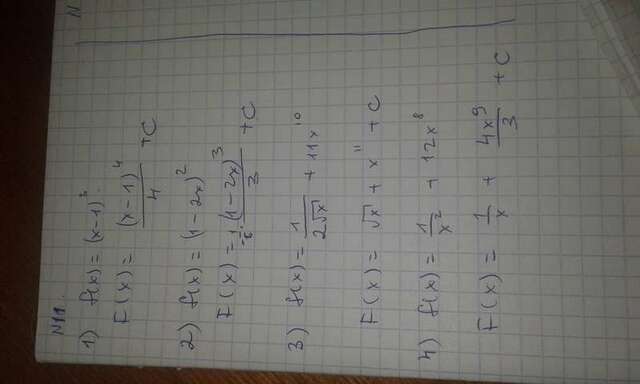 N11.
1) f(x) = (x-1)³
F(x) = (x-1)⁴/4 + C
2) f(x) = (1-2x)²
F(x) = (1-2x)³/3 + C
3) f(x) = 1/(2√x) + 11x¹⁰
F(x) = √x + x¹¹ + C
4) f(x) = 1/x² + 12x⁸
F(x) = 1/x + 4x⁹/3 + C
N